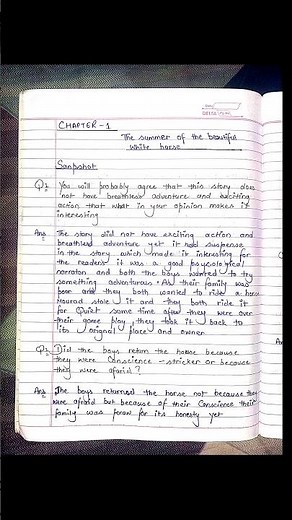 CHAPTER - 1
The summer of the beautiful
white horse
Sanpshot
Q1 You will probably agree that this story does
not have breathless adventure and exciting
action that what in your opinion makes it
interesting
Ans The story did not have exciting action and
breathless adventure yet it had suspense
in the story which made it interesting for
the readers it was a good psycological
narraton and both the boys wanted to try
something adventurous. As their family was
poor and they both wanted to ride a horse
Mourad stole it and they both ride it
for Quiet some time after they were over
their game play, they took it back to
its orignal place and owner
Q2 Did the boys return the horse because
they were Conscience - stricken or because
they were afraid?
Ans The boys returned the horse not because they
were afraid but because of their Conscience their
family was prow for its honesty yet